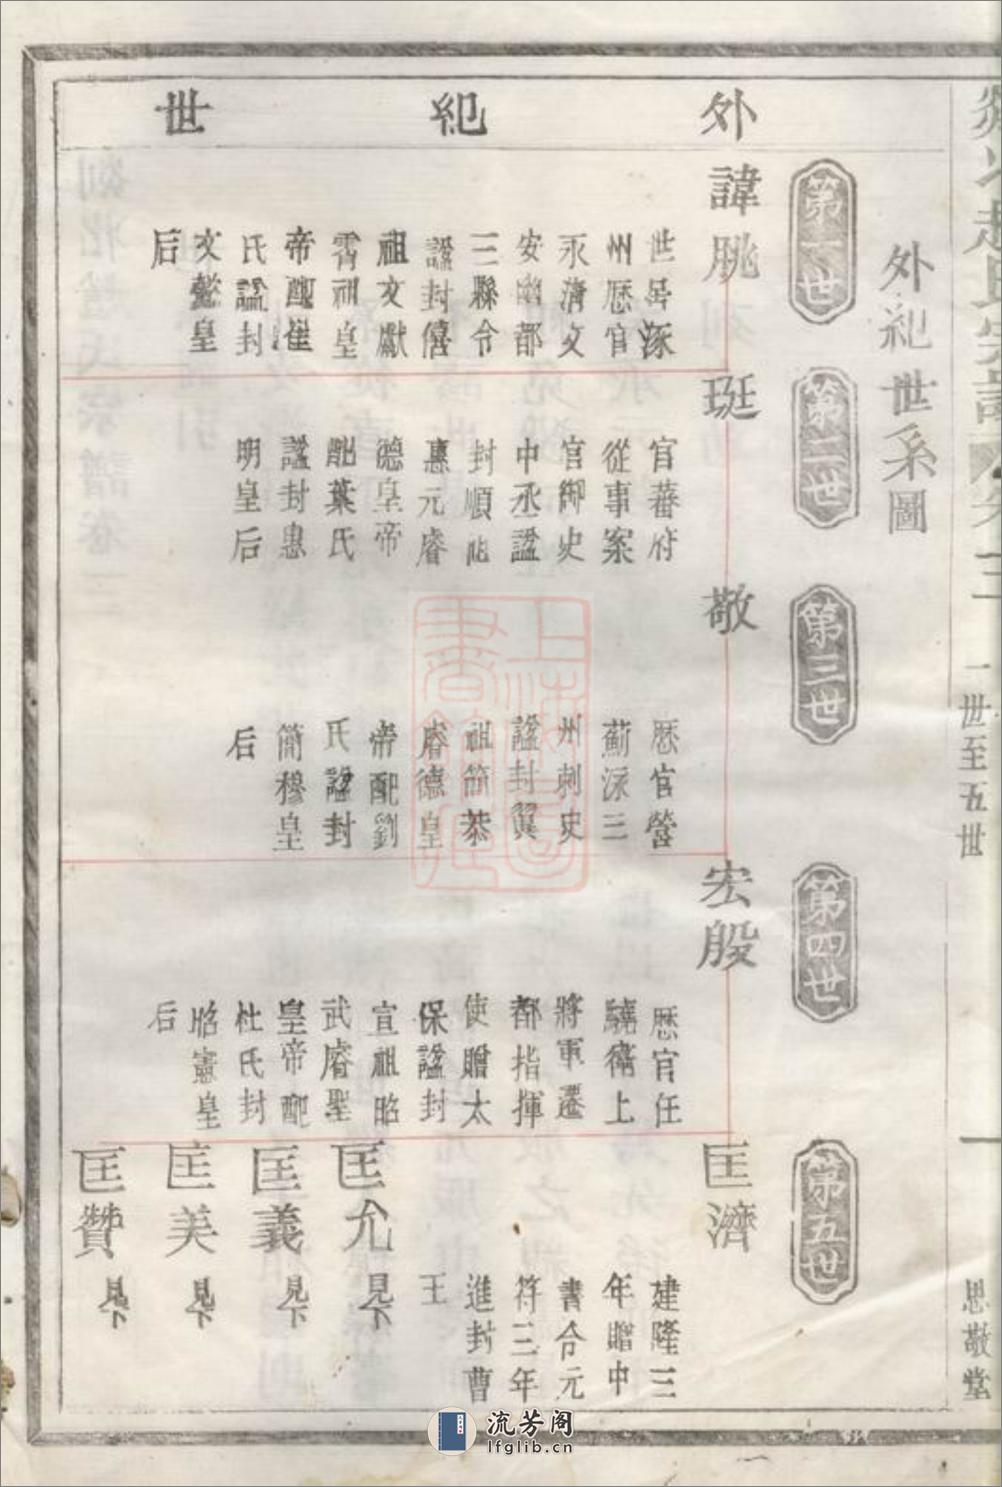 外紀世
外紀世系圖
第一世
諱脁
世居涿
州歷官
永清文
安幽都
三縣令
諡封僖
祖文獻
睿祖皇
帝配崔
氏諡封
文懿皇
后
第二世
珽
官蕃府
從事案
官御史
中丞諡
封順祖
惠元睿
德皇帝
配葉氏
諡封惠
明皇后
第三世
敬
歷官營
薊涿三
州刺史
諡封翼
祖簡恭
睿德皇
帝配劉
氏諡封
簡穆皇
后
第四世
宏殷
歷官任
驍衛上
將軍遷
都指揮
使贈太
保諡封
宣祖昭
武睿聖
皇帝配
杜氏封
昭憲皇
后
第五世
匡濟
建隆三
年贈中
書令元
符三年
進封曹
王
匡允
見下
匡義
見下
匡美
見下
匡贊
見下
趙氏宗譜
一世至五世
思敬堂
上海圖
書館藏
流芳阁
lfglib.cn